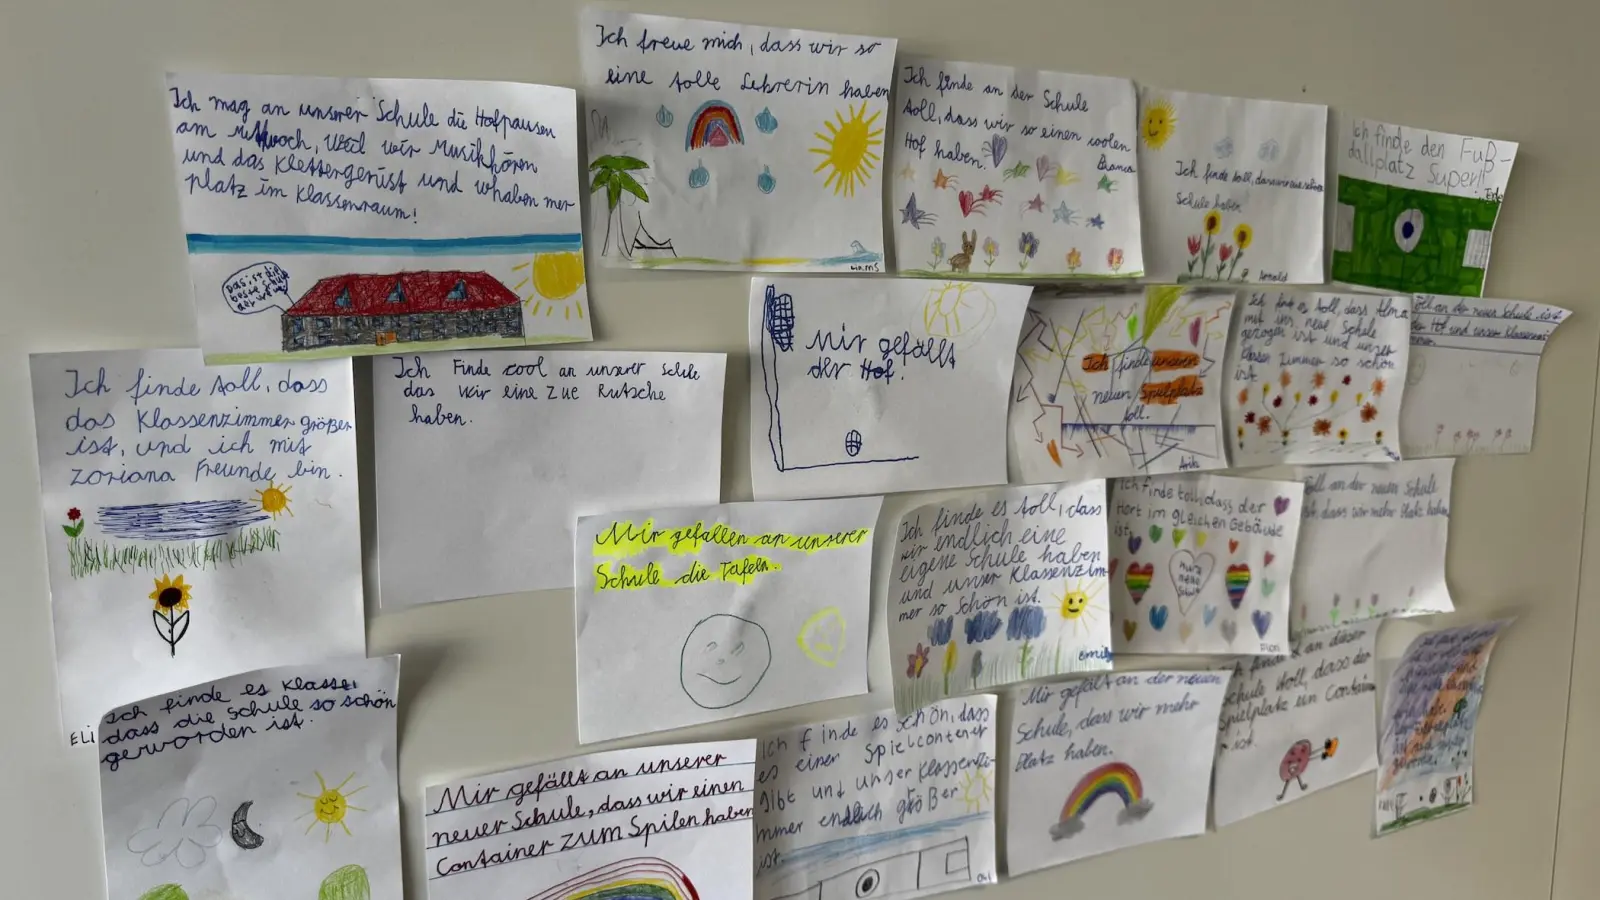 Ich mag an unserer Schule die Hofpausen
am Mittwoch, weil wir Musikhören
und das Klettergerüst und whaben mer
platz im Klassenraum!
Das ist die
beste Schule
der
Ich freue mich, dass wir so
eine tolle Lehrerin haben
Ich finde an der Schule
toll, dass wir so einen coolen
Hof haben.
Bianca
Ich finde toll, dass wir eine schöne
Schule haben
Arnold
Ich finde den Fuß-
dallplatz Super!!
Ich finde toll, dass
das Klassenzimmer größer
ist, und ich mit
Zoriana Freunde bin.
ELI
Ich Finde cool an unserer Schule
das wir eine Zue Rutsche
haben.
Mir gefällt
der Hof.
Ich finde unseren
neuen Spielplatz
toll.
Arik
Ich finde es toll, dass Alma
mit uns, neue Schule
gezogen ist und unser
Klassen Zimmer so schön
ist
Toll an der neuen Schule ist
der Hof und unser Klassenzi
mmer.
Mir gefallen an unserer
Schule die Tafeln.
Ich finde es toll, dass
wir endlich eine
eigene Schule haben
und unser Klassenzim-
mer so schön ist.
Emily
Ich finde toll, dass der
Hort im gleichen Gebäude
ist.
Fion
Toll an der neuen Schule
ist, dass wir mehr Platz haben
Ich finde es klasse,
dass die Schule so schön
geworden ist.
Mir gefällt an unserer
neuer Schule, dass wir einen
Container zum Spilen haben
Ich finde es schön, dass
es einer Spielcontener
gibt und unser Klassenzi-
mmer endlich größer
ist.
Mir gefällt an der neuen
Schule, dass wir mehr
Platz haben.
Ich finde an dieser
Schule toll, dass der
Spielplatz ein Contain
er ist.